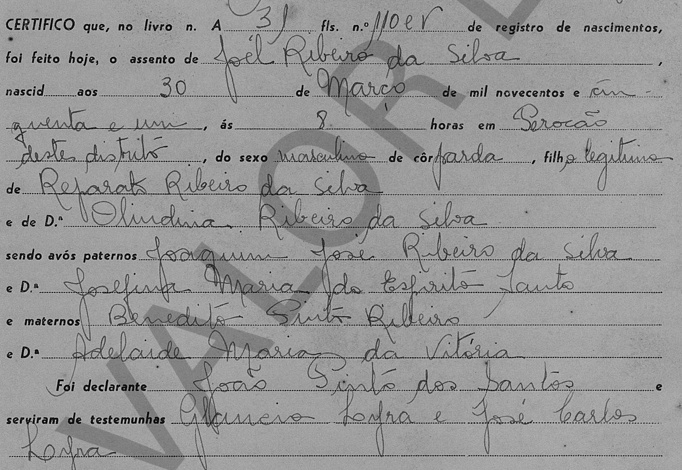 CERTIFICO que, no livro n. A 31 fls. n.º 110 e v de registro de nascimentos,
foi feito hoje, o assento de Joél Ribeiro da Silva,
nascid aos 30 de Março de mil novecentos e cin-
quenta e um, ás 8 horas em Perocão
destes distrito, do sexo masculino de côr parda, filho legitimo
de Reparato Ribeiro da Silva
e de D.ª Olindina Ribeiro da Silva
sendo avós paternos Joaquim José Ribeiro da Silva
e D.ª Josefina Maria do Espirito Santo
e maternos Benedito Pinto Ribeiro
e D.ª Adelaide Maria da Vitória
Foi declarante João Pinto dos Santos e
serviram de testemunhas Glaucio Lyra e José Carlos
Lyra
VALOR